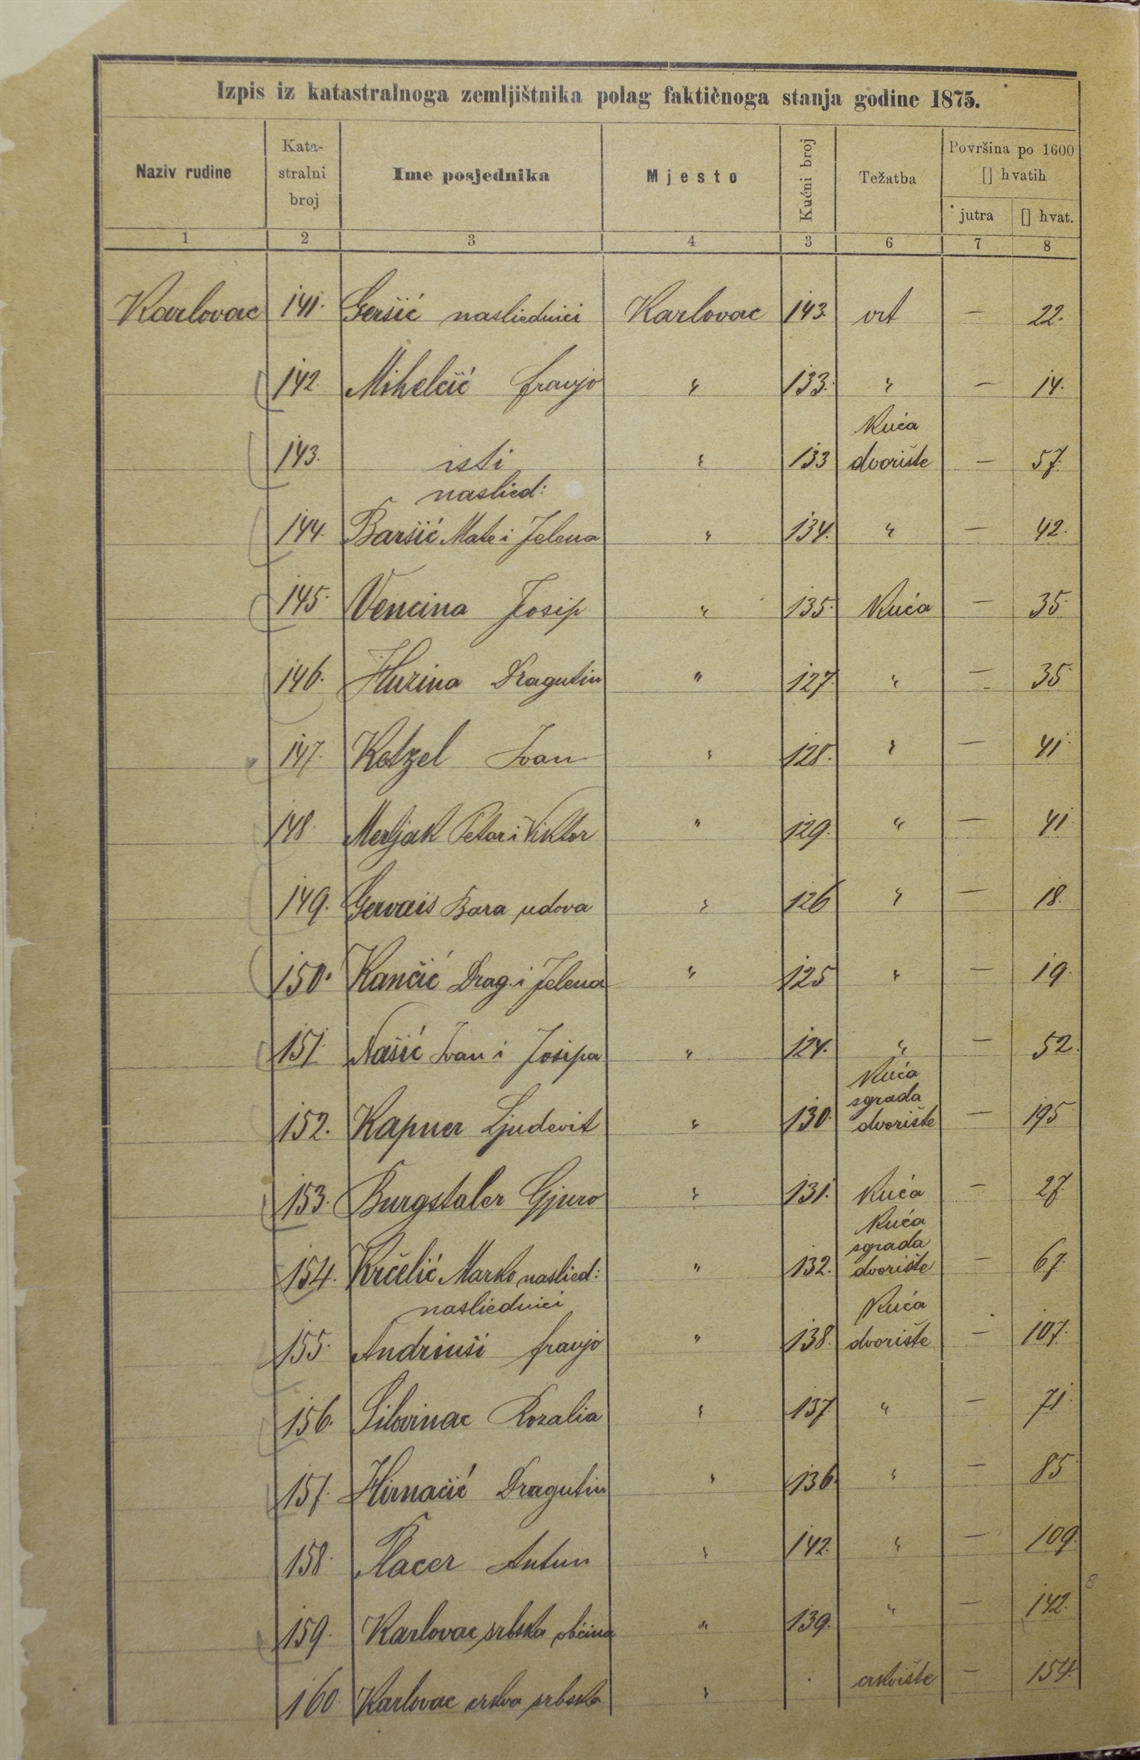 Izpis iz katastralnoga zemljištnika polag faktičnoga stanja godine 1875.
Naziv rudine Kata-stralni broj Ime posjednika Mjesto Kućni broj Težatba Površina po 1600 [] hvatih
jutra [] hvat.
1 2 3 4 3 6 7 8
Karlovac 141. Geršić nasliednici Karlovac 143. vrt — 22.
142 Mihelčić franjo " 133. " — 14.
Kuća
143. isti " 133 dvorište — 57.
naslied:
144. Baršić Mate i Jelena " 134. " — 42.
145. Vencina Josip " 135. Kuća — 35.
146. Hurina Dragutin " 127. " — 35.
147. Ketzel Ivan " 128. " — 41.
148. Merljak Petar i Viktor " 129. " — 41
149. Gervais Bara udova " 126 " — 18.
150. Kančić Drag. i Jelena " 125 " — 19.
151. Našić Ivan i Josipa " 124. " — 52.
Kuća
sgrada
152. Kapner Ljudevit " 130. dvorište — 195
153. Burgstaler Gjuro " 131. Kuća — 27.
Kuća
sgrada
154. Krčelić Marko naslied: " 132. dvorište — 67.
nasliednici Kuća
155. Andriuši franjo " 138. dvorište — 107.
156. Silovinac Rozalia " 137. " — 71.
157. Hirnačić Dragutin " 136. " — 85.
158. Placer Antun " 142. " — 109.
159. Karlovac srbska obćina " 139. " — 142.
160. Karlovac crkva srbska " crkvište — 154.